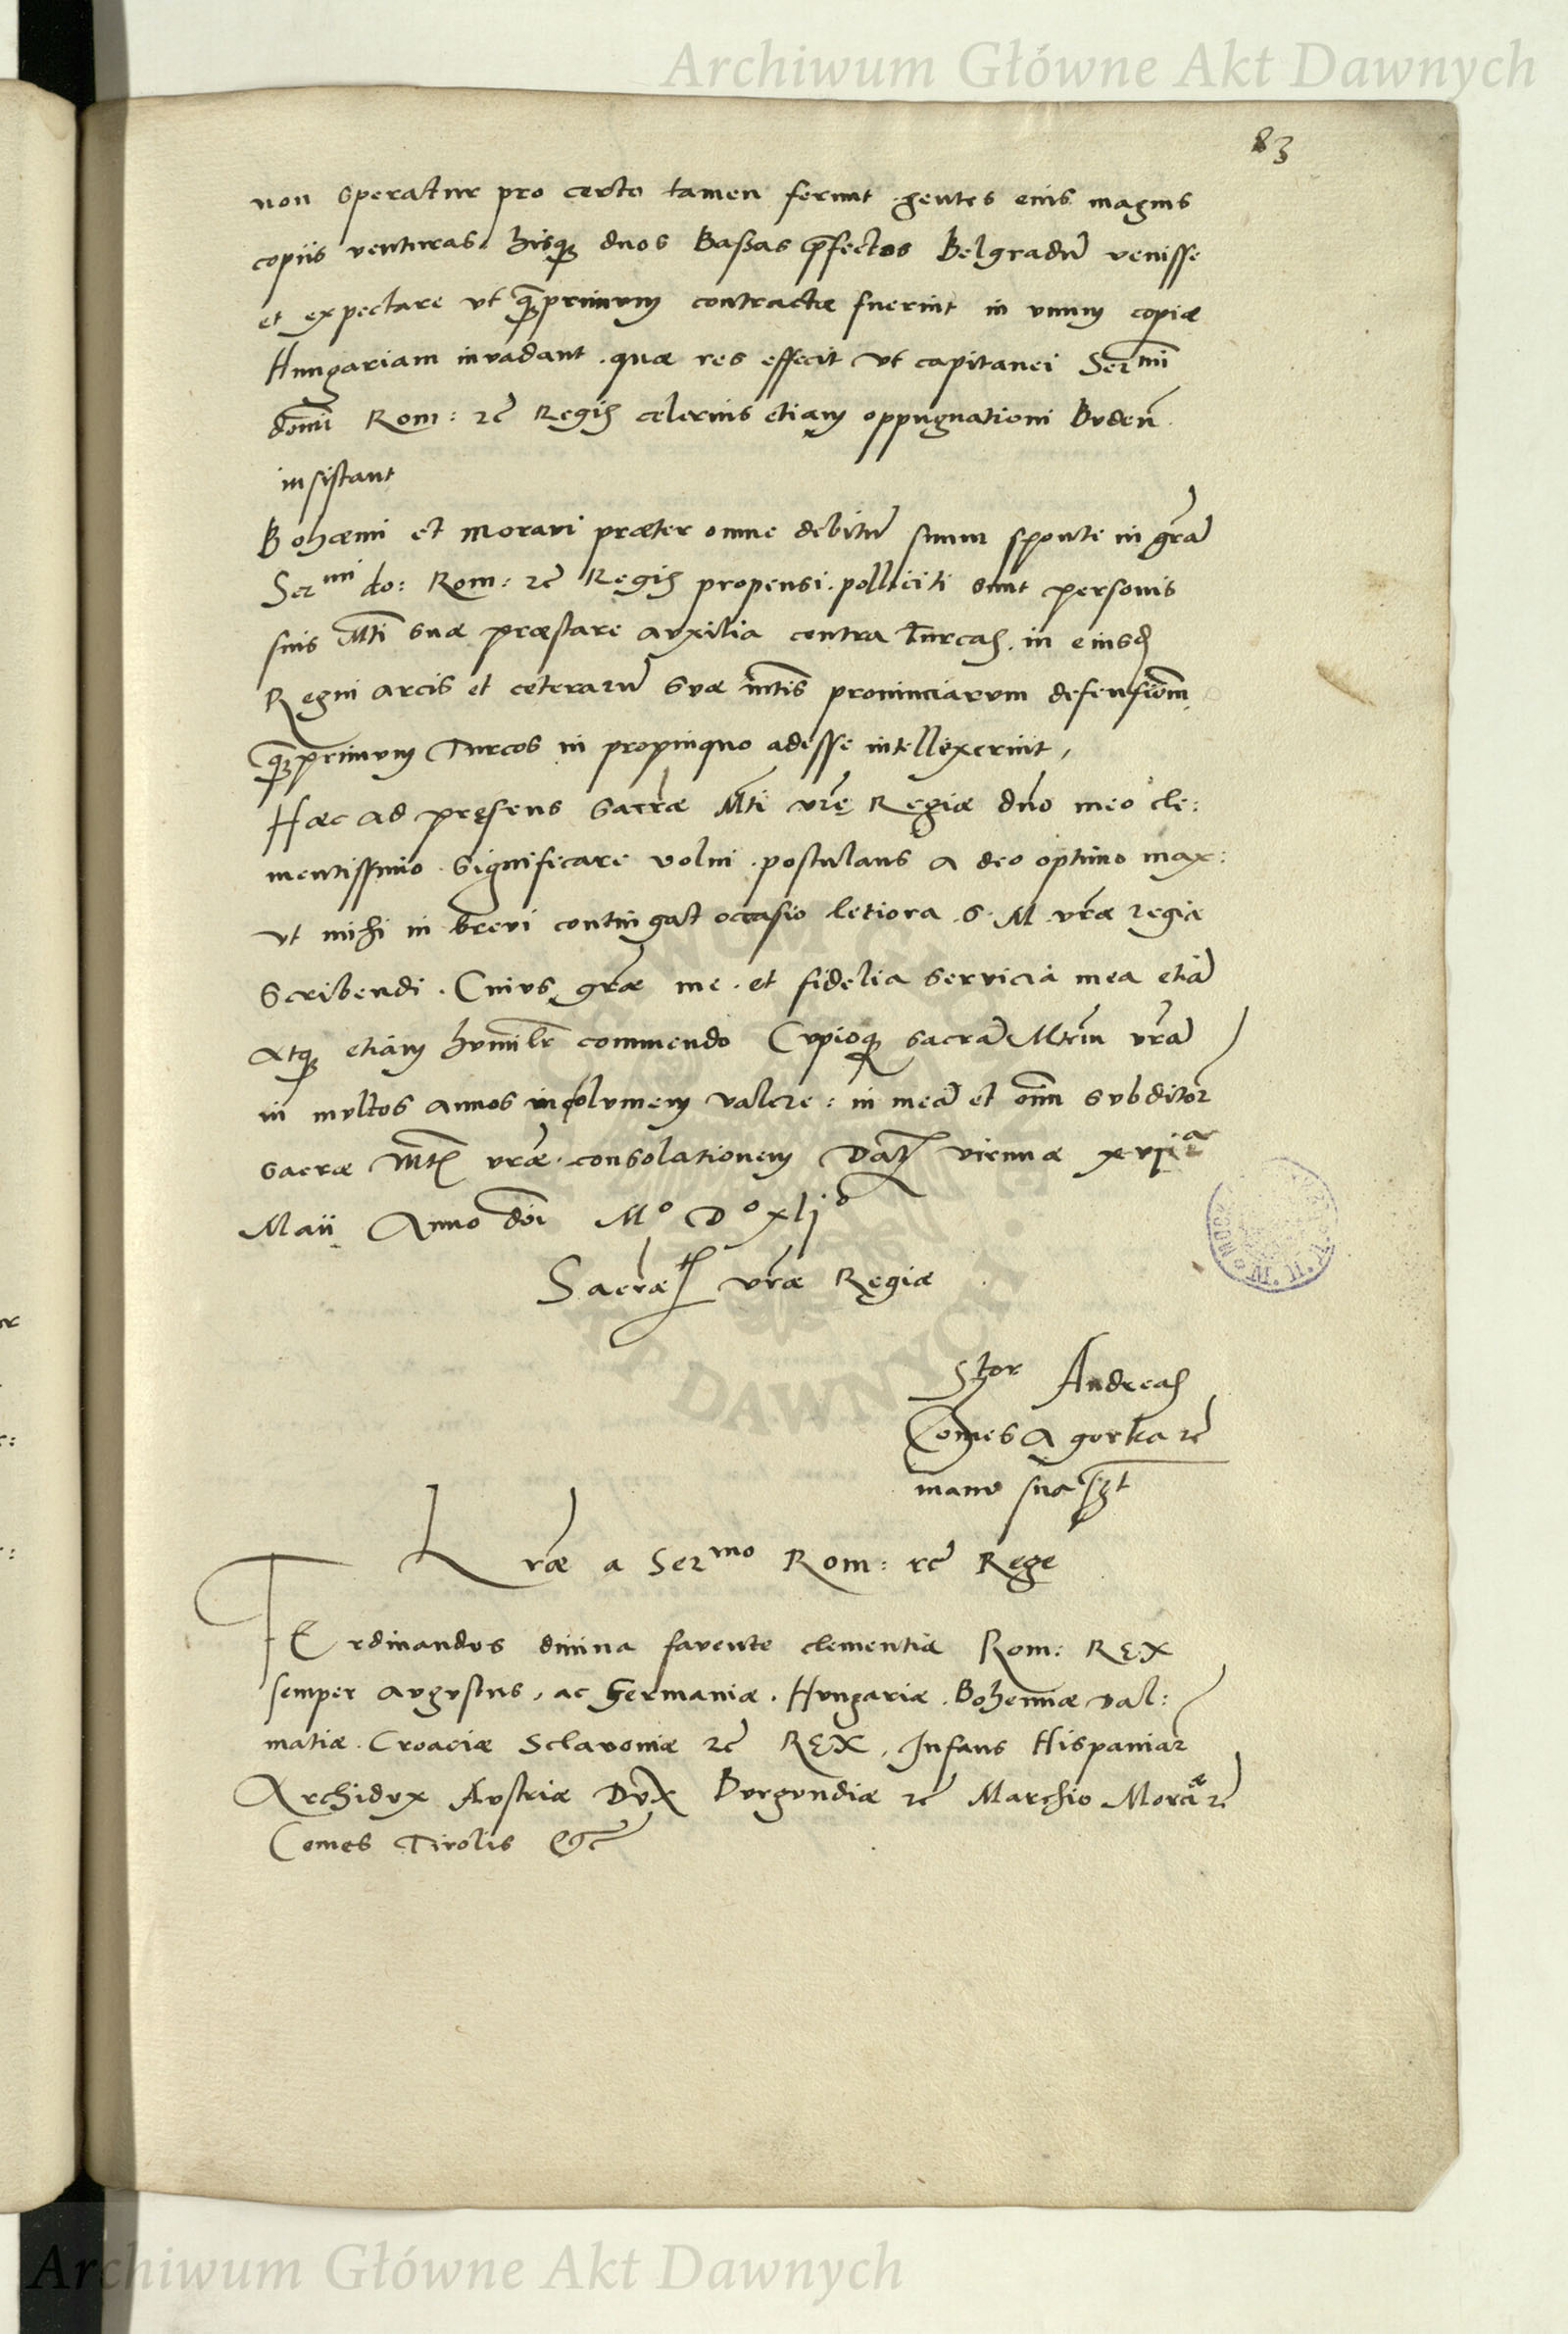 Archiwum Główne Akt Dawnych
83
non speratur pro certo tamen ferunt gentes eius magnis
copiis venturas, hisq3 duos Baßas p̄fectos Belgradū venisse
et expectare vt q̄3primum contractæ fuerint in vnum copiæ
Hungariam invadant . quæ res effecit vt capitanei Sermi
domi Rom : rc̄ Regis celerius etiam oppugnationi Buden̄
insistant
Bohæmi et Moravi præter omne debitū suum sponte in gr̄am
Sermi do: Rom: rc̄ Regis propensi . polliciti sunt personis
suis Mti suæ præstare auxilia contra Turcas . in eiusd
Regni arcis et ceterarū suæ mtis prouinciarum defensionē
q̄3primum Turcos in propinquo adesse intellexerint,
Hæc ad pręsens Sacræ Mti vrę Regiæ dno meo cle:
mentissimo . Significare volui . postulans a deo optimo max:
vt mihi in brevi contingat occasio letiora . S . M . vræ regiæ
scribendi . Cuius græ me . et fidelia servicia mea etiā
atq3 etiam humilr commendo Cupioq3 sacrā Mtem vrām
in multos annos incolumem valere : in meā et oīm subditor
sacræ Mtis vræ . consolationem Dat viennæ xvija
Maii Anno doi Mo Do xljo
Sacræ vræ Regiæ
Stor Andreas
Comes a gorka rc̄
manu sua sst
Lræ a Sermo Rom : rc̄ Rege
FErdinandus diuina favente clementia Rom: REX
semper augustus, ac Germaniæ . Hungariæ . Bohemiæ dal:
matiæ . Croaciæ Sclavoniæ rc̄ REX, Infans Hispaniar
Archidux Austriæ Dux Burgundiæ rc̄ Marchio Moraæ rc̄
Comes Tirolis &c
Archiwum Główne Akt Dawnych